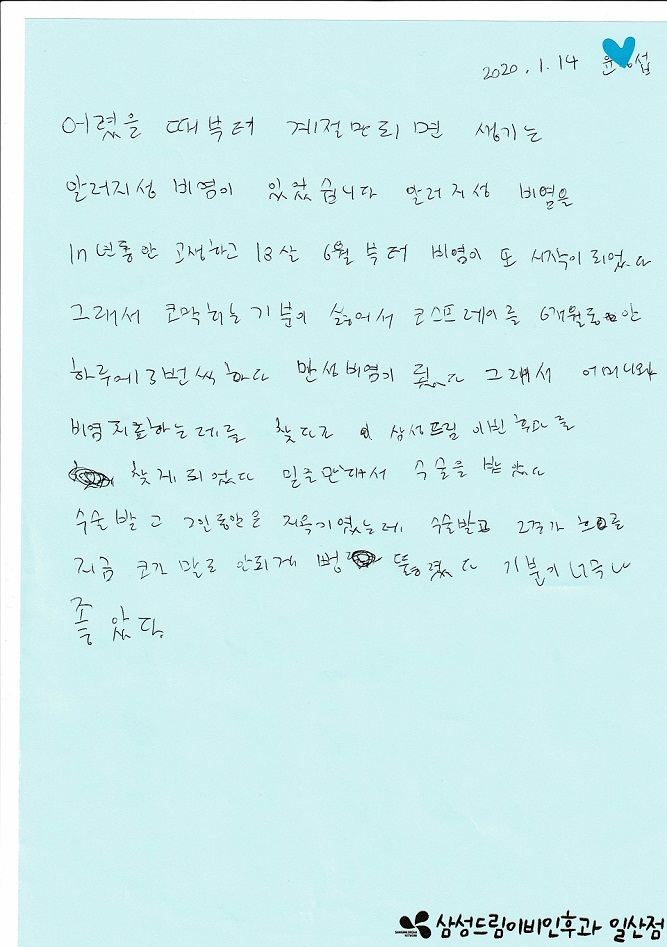 2020. 1. 14 윤 섭
어렸을 때부터 계절만되면 생기는
알러지성 비염이 있었습니다 알러지성 비염을
10년동안 고생하고 18살 6월부터 비염이 또 시작이 되었다
그래서 코막히는 기분이 싫어서 코스프레이를 6개월동안
하루에 3번씩 하다 만성비염이 됬다 그래서 어머니와
비염치료하는데를 찾다가 삼성드림 이빈후과를
찾게되었다 일주만에 수술을 받았다
수술받고 7일동안은 지옥기였는데 수술받고 2주가 흐르
지금 코가 말로 안되게 뻥 뚫렸다 기분이 너무나
좋았다.
삼성드림이비인후과 일산점